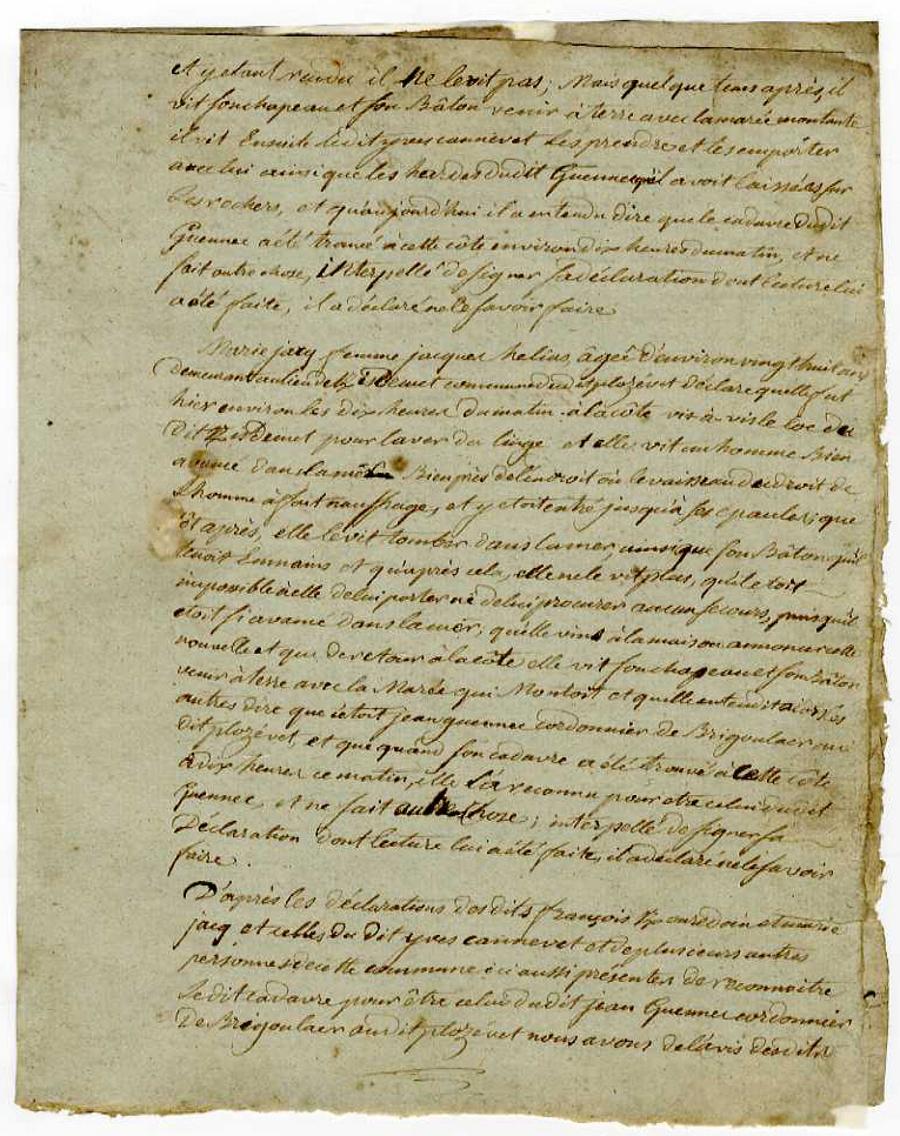 et y etant rendu il ne le vit pas; Mais quelque tems après, il
vit son chapeau et son Bâton venir à terre avec la marée montante
il vit Ensuite ledit yves cannevet Les prendre et les emporter
avec lui ainsi que les hardes dudit Guennec qu'il avoit laissées sur
Les rochers, et qu'aujourd'hui il a entendu dire que le cadavre dudit
Guennec a été trouvé à cette côte environ dix heures du matin, et ne
sait autre chose, interpellé de signer sa déclaration dont lecture lui
a été faite, il a déclaré ne le savoir faire
Marie jacq femme jacques helias, âgée d'environ vingt huit ans
demeurant au lieu de commundudit plozévet déclare quelle fut
hier environ les dix heures du matin à la côte vis-à-vis le loc du
dit pour laver du linge et elle vit un homme Bien
avancé dans la mèr Bien près de l'endroit où le vaisseau des droit de
L'homme a fait nauffrage, et y etoit entré jusqu'à ses epaules; que
et après, elle le vit tomber dans la mer, ainsi que son Bâton qu'il
tenoit Enmains et qu'après cela, elle ne le vit plus, qu'il etoit
impossible à elle de lui porter ne de lui procurer aucun secours, puisqu'il
etoit si avamé dans la mèr, quelle vint à la maison annoncer cette
nouvelle et que de retour à la côte elle vit son chapeau et son Bâton
venir à terre avec la Marée qui Montoit et quelle entendit alors les
autres dire que c'etoit jean guennec cordonnier de Brigoulaer au
dit plozévet, et que quand son cadavre a été trouvé à Cette côte
à dix heures ce matin, elle l'a reconnu pour etre celui dudit
Guennec, et ne sait autre chose; interpellé de signer sa
Déclaration dont lecture lui a été faite, il a déclaré ne le savoir
faire.
D'après les déclarations des dits françois et marie
jacq et celles du dit yves cannevet et de plusieurs autres
personnes de cette commune ici aussi présentes de reconnoitre
Le dit cadavre pour être celui dudit jean Guennec cordonnier
De Brigoulaer audit plozévet nous avons de l'avis desdits